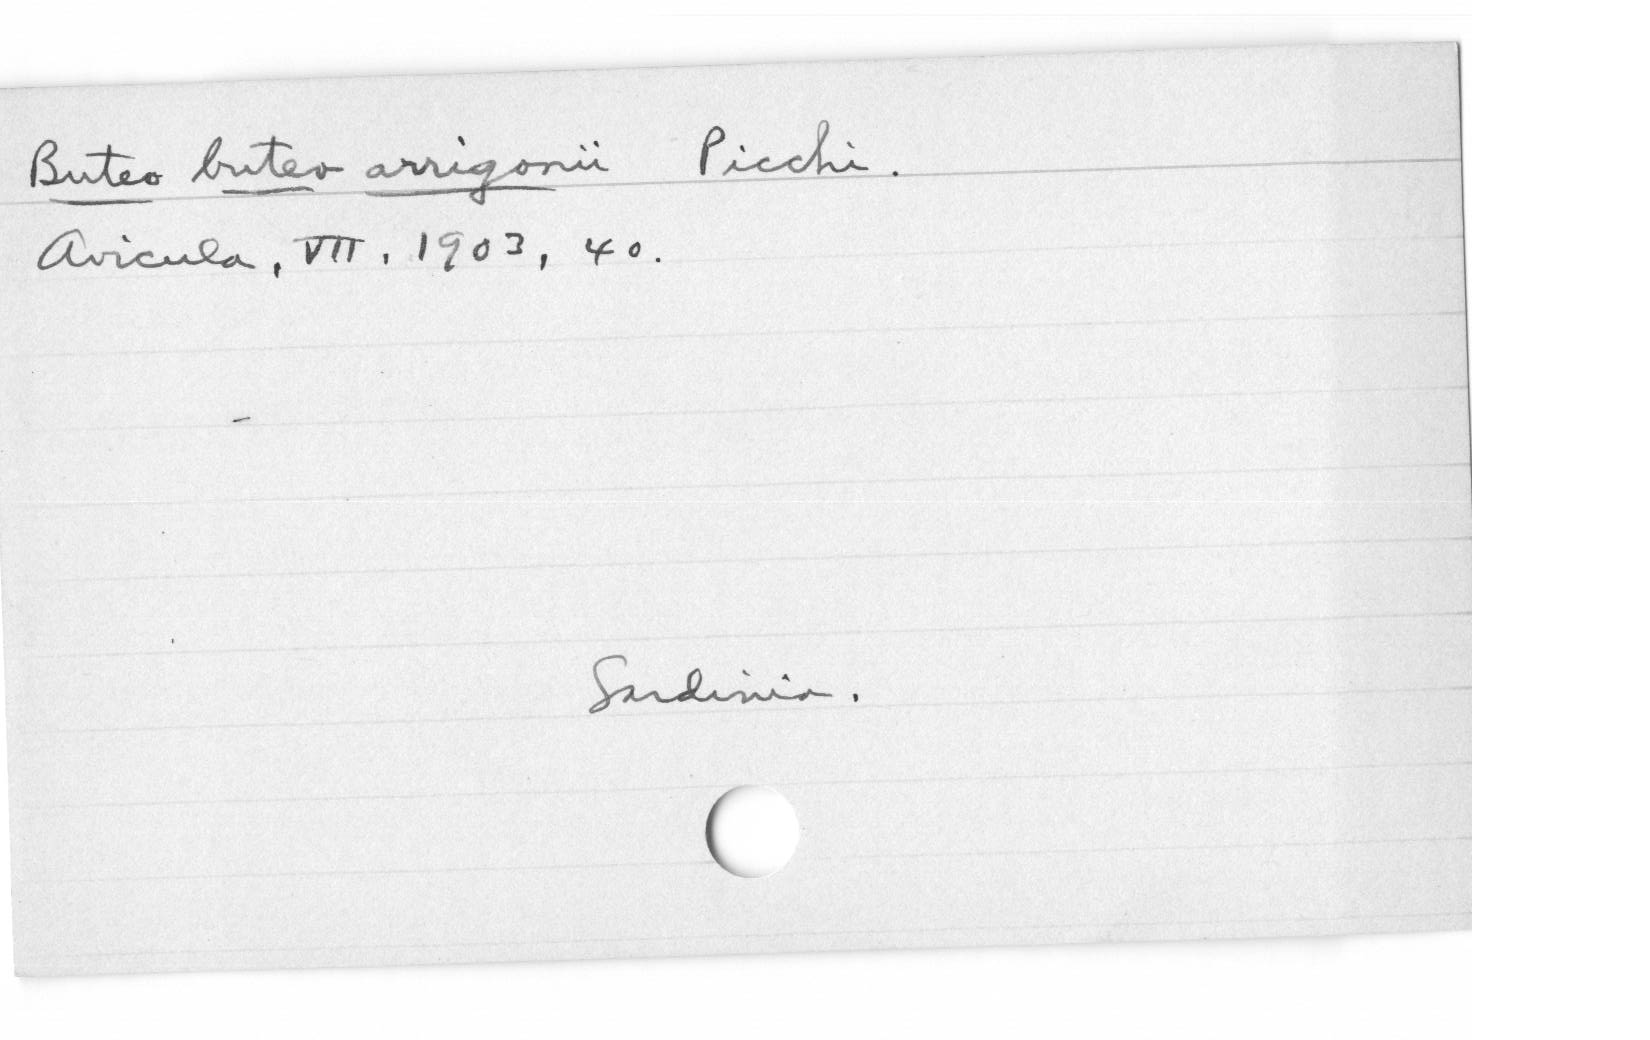 Buteo buteo arrigonii Picchi.
Avicula, VII, 1903, 40.
Sardinia.